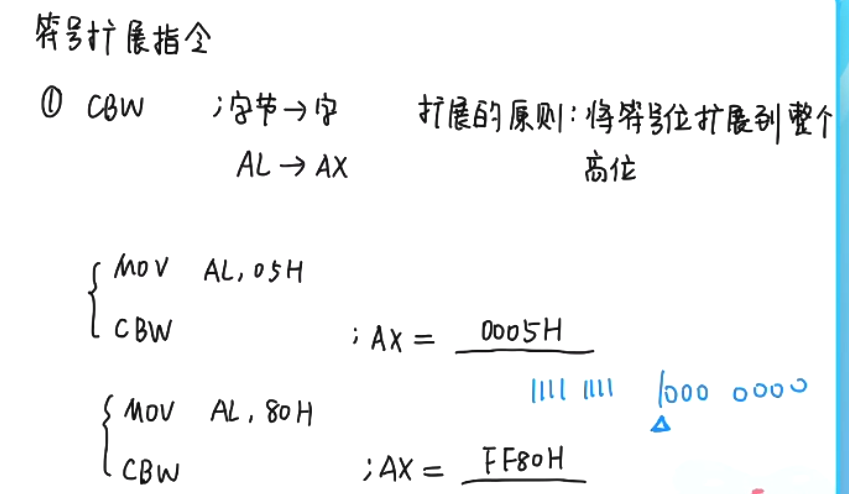 符号扩展指令
① CBW ;字节→字 扩展的原则:将符号位扩展到整个
AL→AX 高位
MOV AL,05H
CBW ;AX= 0005H
1111 1111 1000 0000
MOV AL,80H
CBW ;AX= FF80H